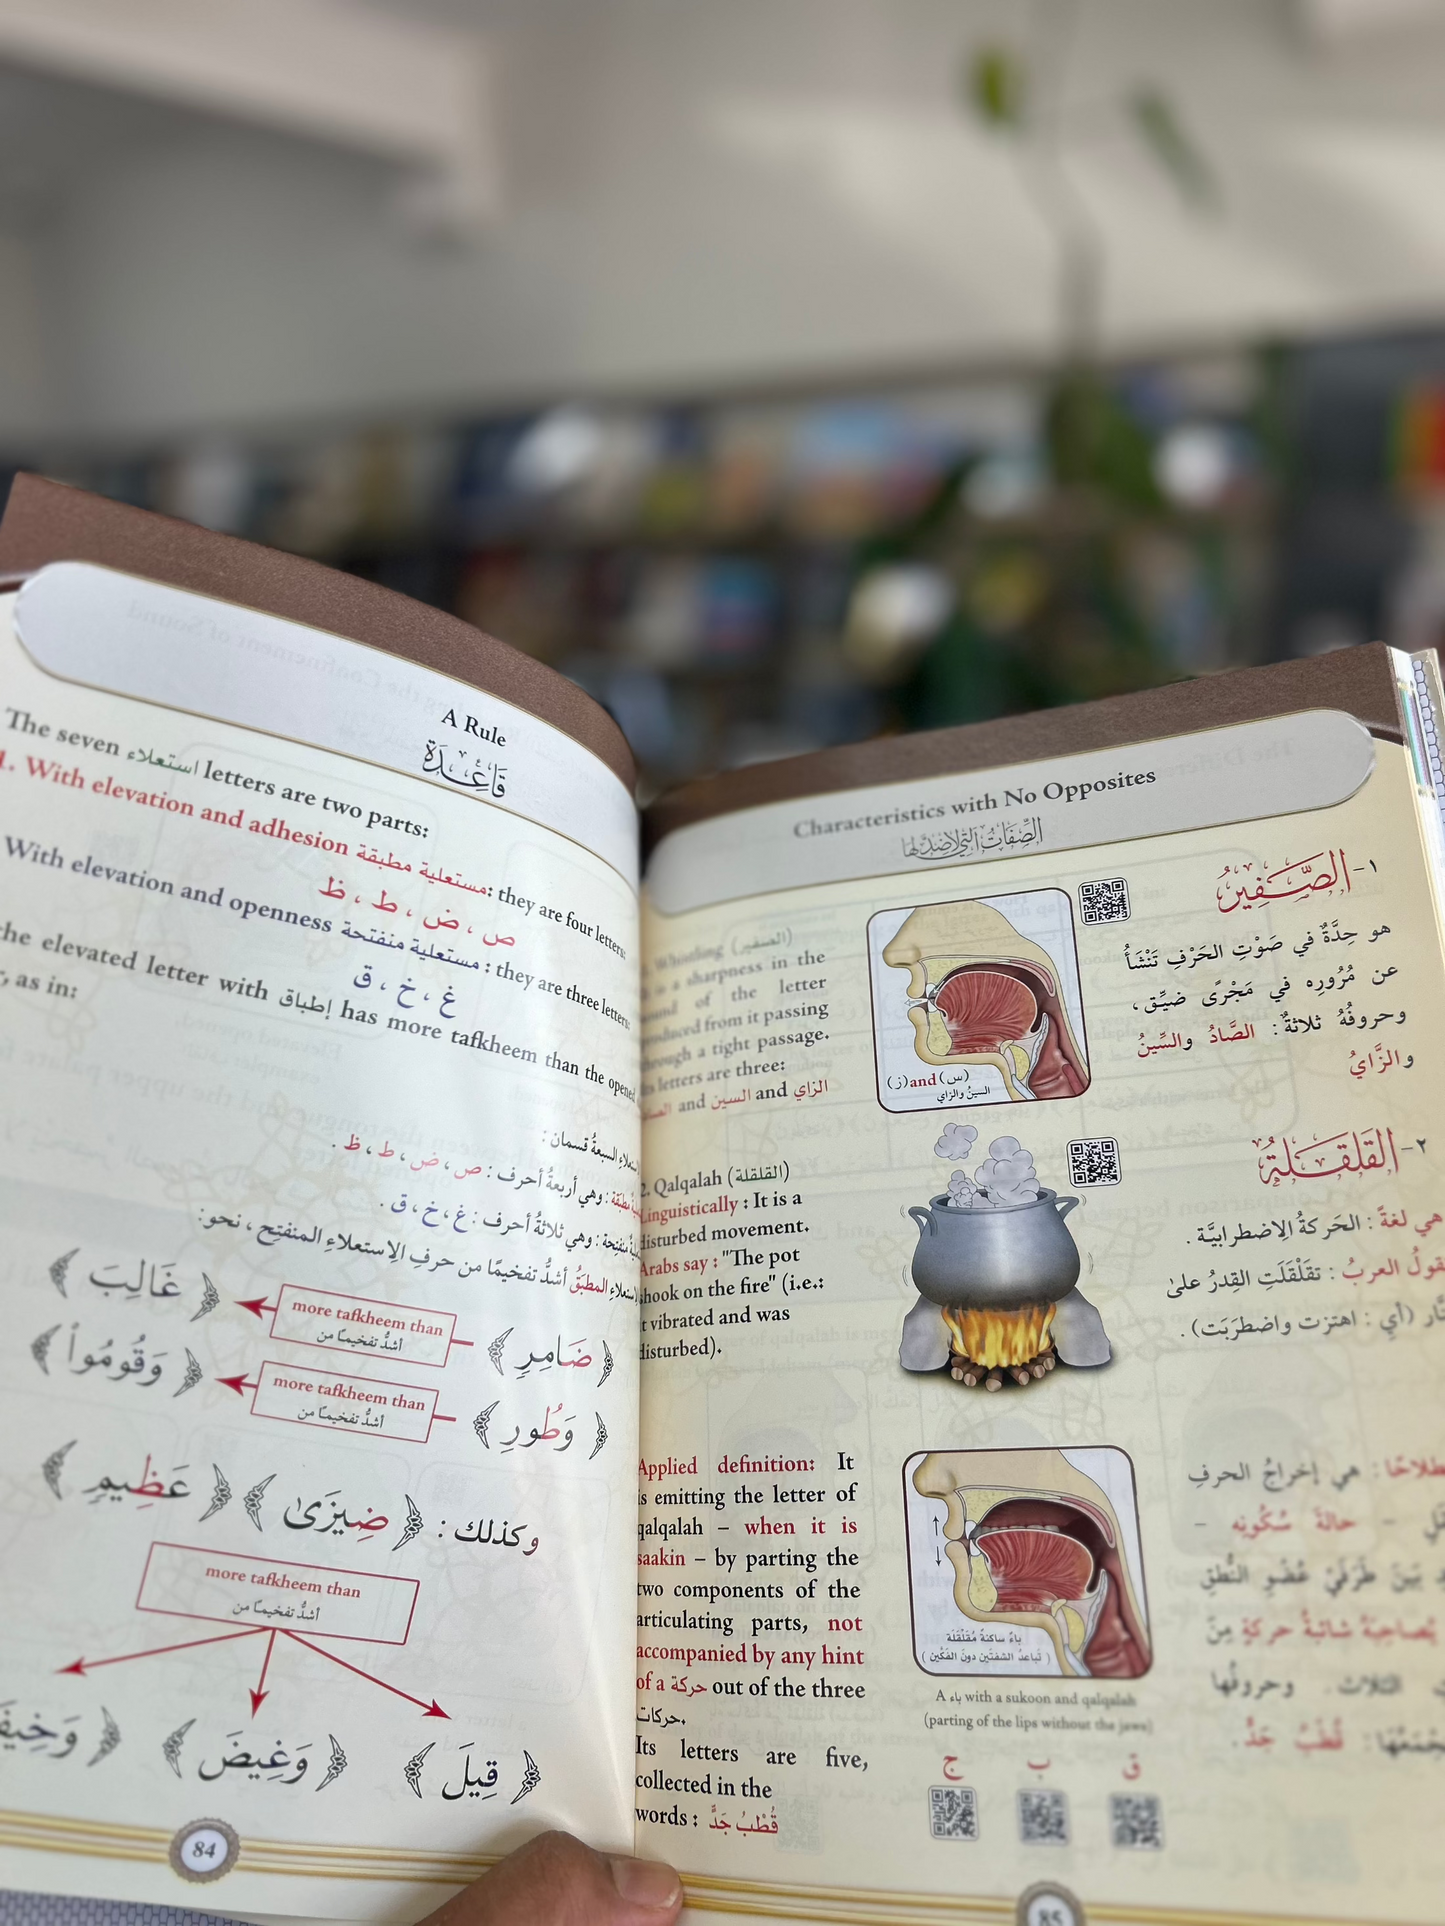 A Rule
قَاعِدَة
The seven استعلاء letters are two parts:
1. With elevation and adhesion مستعلية مطبقة: they are four letters:
ص ، ض ، ط ، ظ
With elevation and openness مستعلية منفتحة : they are three letters:
غ ، خ ، ق
the elevated letter with إطباق has more tafkheem than the opened
, as in:
السبعةُ قسمان :
: وهي أربعةُ أحرف : ص ، ض ، ط ، ظ .
: وهي ثلاثةُ أحرف : غ ، خ ، ق .
المطبَقُ أشدُّ تفخيمًا من حرفِ الاِستعلاءِ المنفتِح ، نحو:
﴿ ضَامِرٍ ﴾ more tafkheem than ﴿ غَالِبَ ﴾
أشدُّ تفخيمًا من
﴿ وَطُورِ ﴾ more tafkheem than ﴿ وَقُومُواْ ﴾
أشدُّ تفخيمًا من
وكذلك : ﴿ ضِيزَىٰ ﴾ ﴿ عَظِيمٍ ﴾
more tafkheem than
أشدُّ تفخيمًا من
﴿ قِيلَ ﴾ ﴿ وَغِيضَ ﴾
84
Characteristics with No Opposites
الصِّفَاتُ الَّتِي لَا ضِدَّ لَهَا
١- الصَّفِيرُ
هو حِدَّةٌ في صَوْتِ الحَرْفِ تَنْشَأُ
عن مُرُورِه في مَجْرًى ضيِّق ،
وحروفُهُ ثلاثةٌ : الصَّادُ والسِّينُ
والزَّايُ
Whistling (الصفير)
is a sharpness in the
of the letter
from it passing
through a tight passage.
Its letters are three:
and السين and الزاي
(س) and (ز)
السينُ والزاي
٢- القَلقَلَةُ
هي لغةً : الحَركةُ الاِضطرابيَّة .
العربُ : تقَلْقَلَتِ القِدرُ علىٰ
(أي : اهتزت واضطرَبَت) .
2. Qalqalah (القلقلة)
Linguistically : It is a
disturbed movement.
Arabs say : "The pot
shook on the fire" (i.e.:
it vibrated and was
disturbed).
Applied definition: It
is emitting the letter of
qalqalah – when it is
saakin – by parting the
two components of the
articulating parts, not
accompanied by any hint
of a حركة out of the three
حركات.
Its letters are five,
collected in the
words : قُطْبُ جَدٍّ
: هي إخراجُ الحرفِ
– حالةَ سُكُونِه –
بَيْنَ طَرَفَيْ عُضْوِ النُّطْقِ
شائبةُ حركةٍ مِنَ
الثلاث . وحروفُها
: قُطْبُ جَدٍّ .
باءٌ ساكنةٌ مُقَلْقَلَة
( تَباعدُ الشفتين دونَ الفَكَّين )
A باء with a sukoon and qalqalah
(parting of the lips without the jaws)
ق ب ج
85